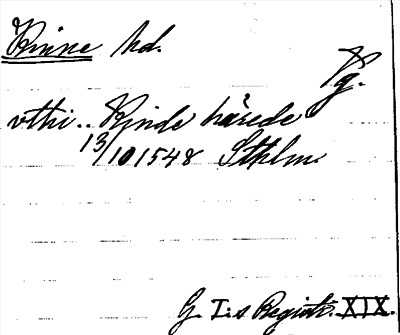 Kinne hd.
Vg.
vthi.. Kinde hårede
13/10 1548 Sthlm.
G. I:s Registr. XIX.